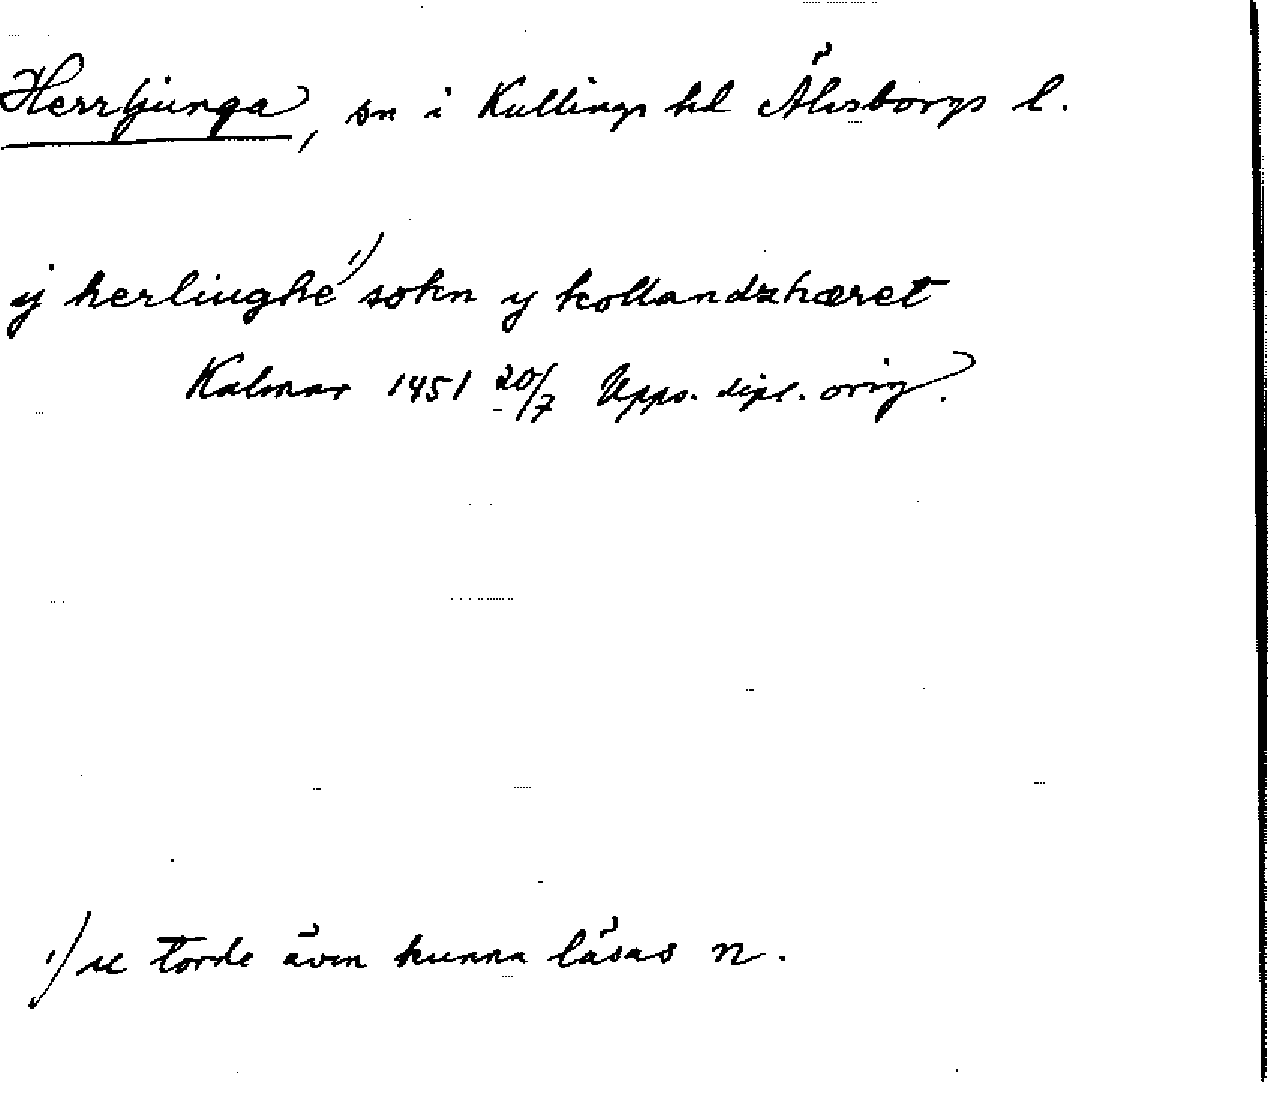 Herrljunga, sn i Kullings hd Älvsborgs l.
ij herliughe 1) sokn y kollandzhæret
Kalmar 1451 20/7 Upps. dipl. orig.
1) u torde även kunna läsas n.